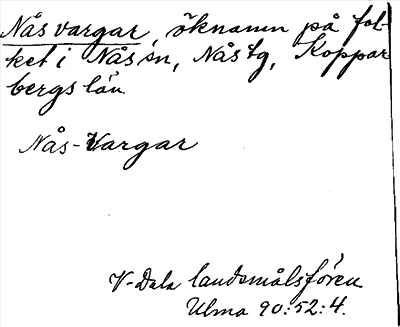 Nåsvargar, öknamn på fol-
ket i Nås sn, Nås tg, Koppar
bergs län
Nås-Vargar
V-Dala landsmålsfören
Ulma 90:52:4.